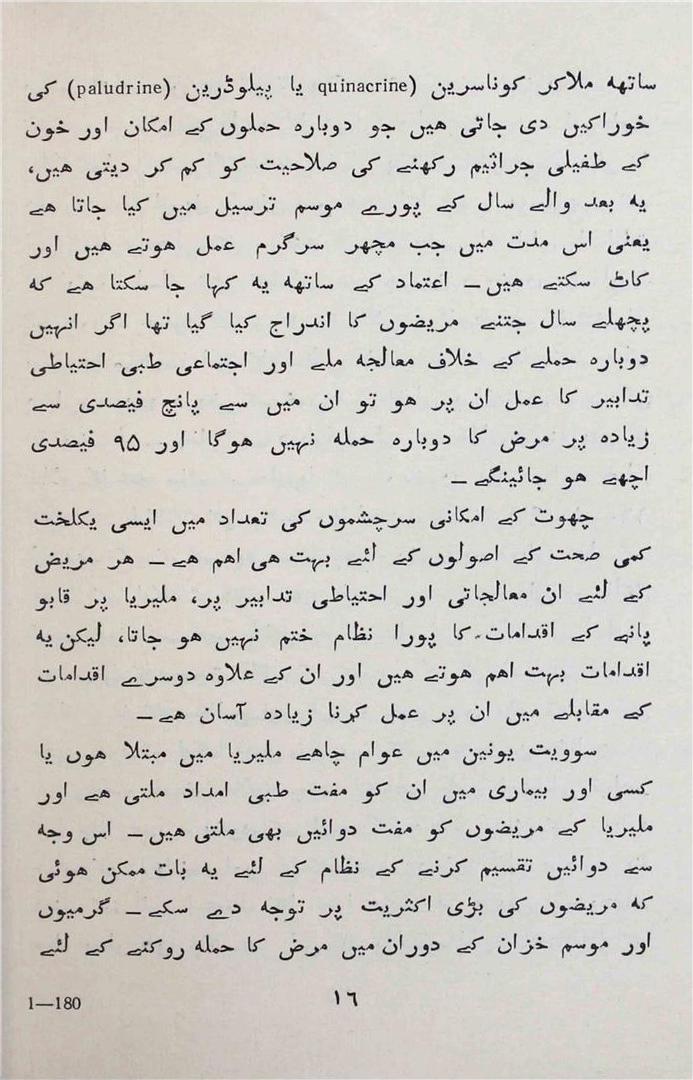 ساتھ ملاکر کوناسرین (quinacrine) یا پیلوڈرین (paludrine) کی
خوراکیں دی جاتی ہیں جو دوبارہ حملوں کے امکان اور خون
کے طفیلی جراثیم رکھنے کی صلاحیت کو کم کر دیتی ہیں،
یہ بعد والے سال کے پورے موسم ترسیل میں کیا جاتا ہے
یعنی اس مدت میں جب مچھر سرگرم عمل ہوتے ہیں اور
کاٹ سکتے ہیں – اعتماد کے ساتھ یہ کہا جا سکتا ہے کہ
پچھلے سال جتنے مریضوں کا اندراج کیا گیا تھا اگر انہیں
دوبارہ حملے کے خلاف معالجہ ملے اور اجتماعی طبی احتیاطی
تدابیر کا عمل ان پر ہو تو ان میں سے پانچ فیصدی سے
زیادہ پر مرض کا دوبارہ حملہ نہیں ہوگا اور ۹۵ فیصدی
اچھے ہو جائینگے –
چھوت کے امکانی سرچشموں کی تعداد میں ایسی یکلخت
کمی صحت کے اصولوں کے لئے بہت ہی اہم ہے – ہر مریض
کے لئے ان معالجاتی اور احتیاطی تدابیر پر، ملیریا پر قابو
پانے کے اقدامات کا پورا نظام ختم نہیں ہو جاتا، لیکن یہ
اقدامات بہت اہم ہوتے ہیں اور ان کے علاوہ دوسرے اقدامات
کے مقابلے میں ان پر عمل کرنا زیادہ آسان ہے –
سوویت یونین میں عوام چاہے ملیریا میں مبتلا ہوں یا
کسی اور بیماری میں ان کو مفت طبی امداد ملتی ہے اور
ملیریا کے مریضوں کو مفت دوائیں بھی ملتی ہیں – اس وجہ
سے دوائیں تقسیم کرنے کے نظام کے لئے یہ بات ممکن ہوئی
کہ مریضوں کی بڑی اکثریت پر توجہ دے سکے – گرمیوں
اور موسم خزاں کے دوران میں مرض کا حملہ روکنے کے لئے
۱۶
1—180